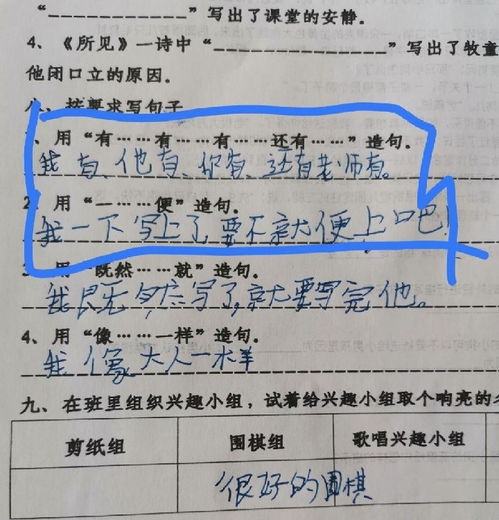 “__________”写出了课堂的安静。
4、《所见》一诗中“__________”写出了牧童
他闭口立的原因。
八、按要求写句子
、用“有……有……有……还有……”造句.
我有、他有、你有、还有老师有。
2、用“一……便”造句.
我一下写上了,要不就便上口巴!
3、用“既然……就”造句.
写了,就要写完他。
4、用“像……一样”造句.
我像大人一水羊
九、在班里组织兴趣小组,试着给兴趣小组取个响亮的
剪纸组 围棋组 歌唱兴趣小组
很好的围棋